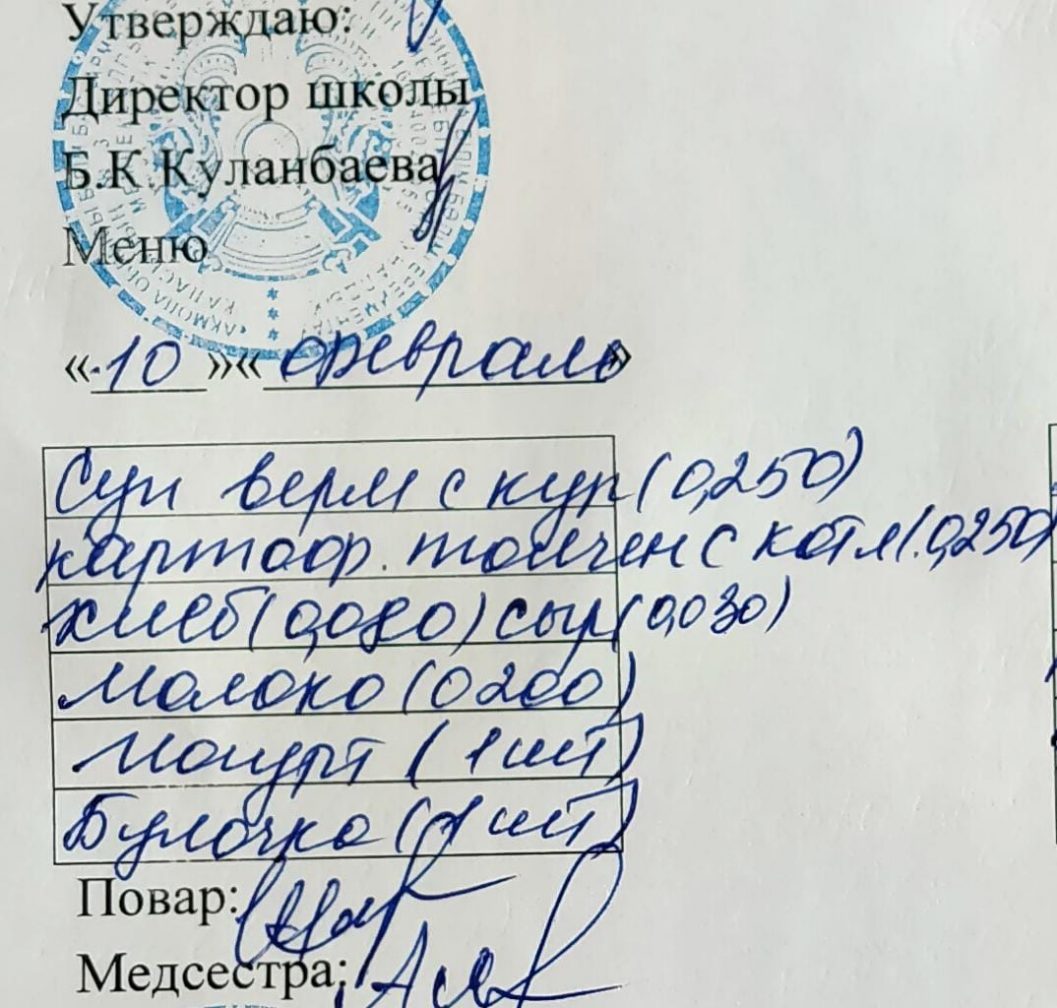 Утверждаю:
Директор школы
Б.К.Куланбаева
Меню
«10»«февраль»
Суп верм с кур (0,250)
картоф. толчен с котл (0,250)
хлеб (0,080) сыр (0,030)
Молоко (0200)
Йогурт (1 шт)
Булочка (1 шт)
Повар:
Медсестра: